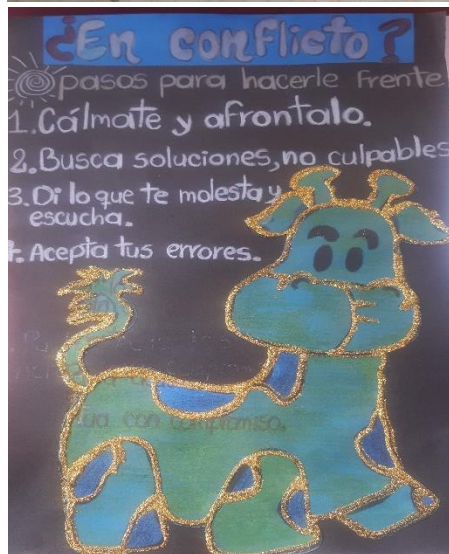 ¿En conflicto?
pasos para hacerle frente
1. Cálmate y afrontalo.
2. Busca soluciones, no culpables
3. Di lo que te molesta y
escucha.
4. Acepta tus errores.
con compromiso.